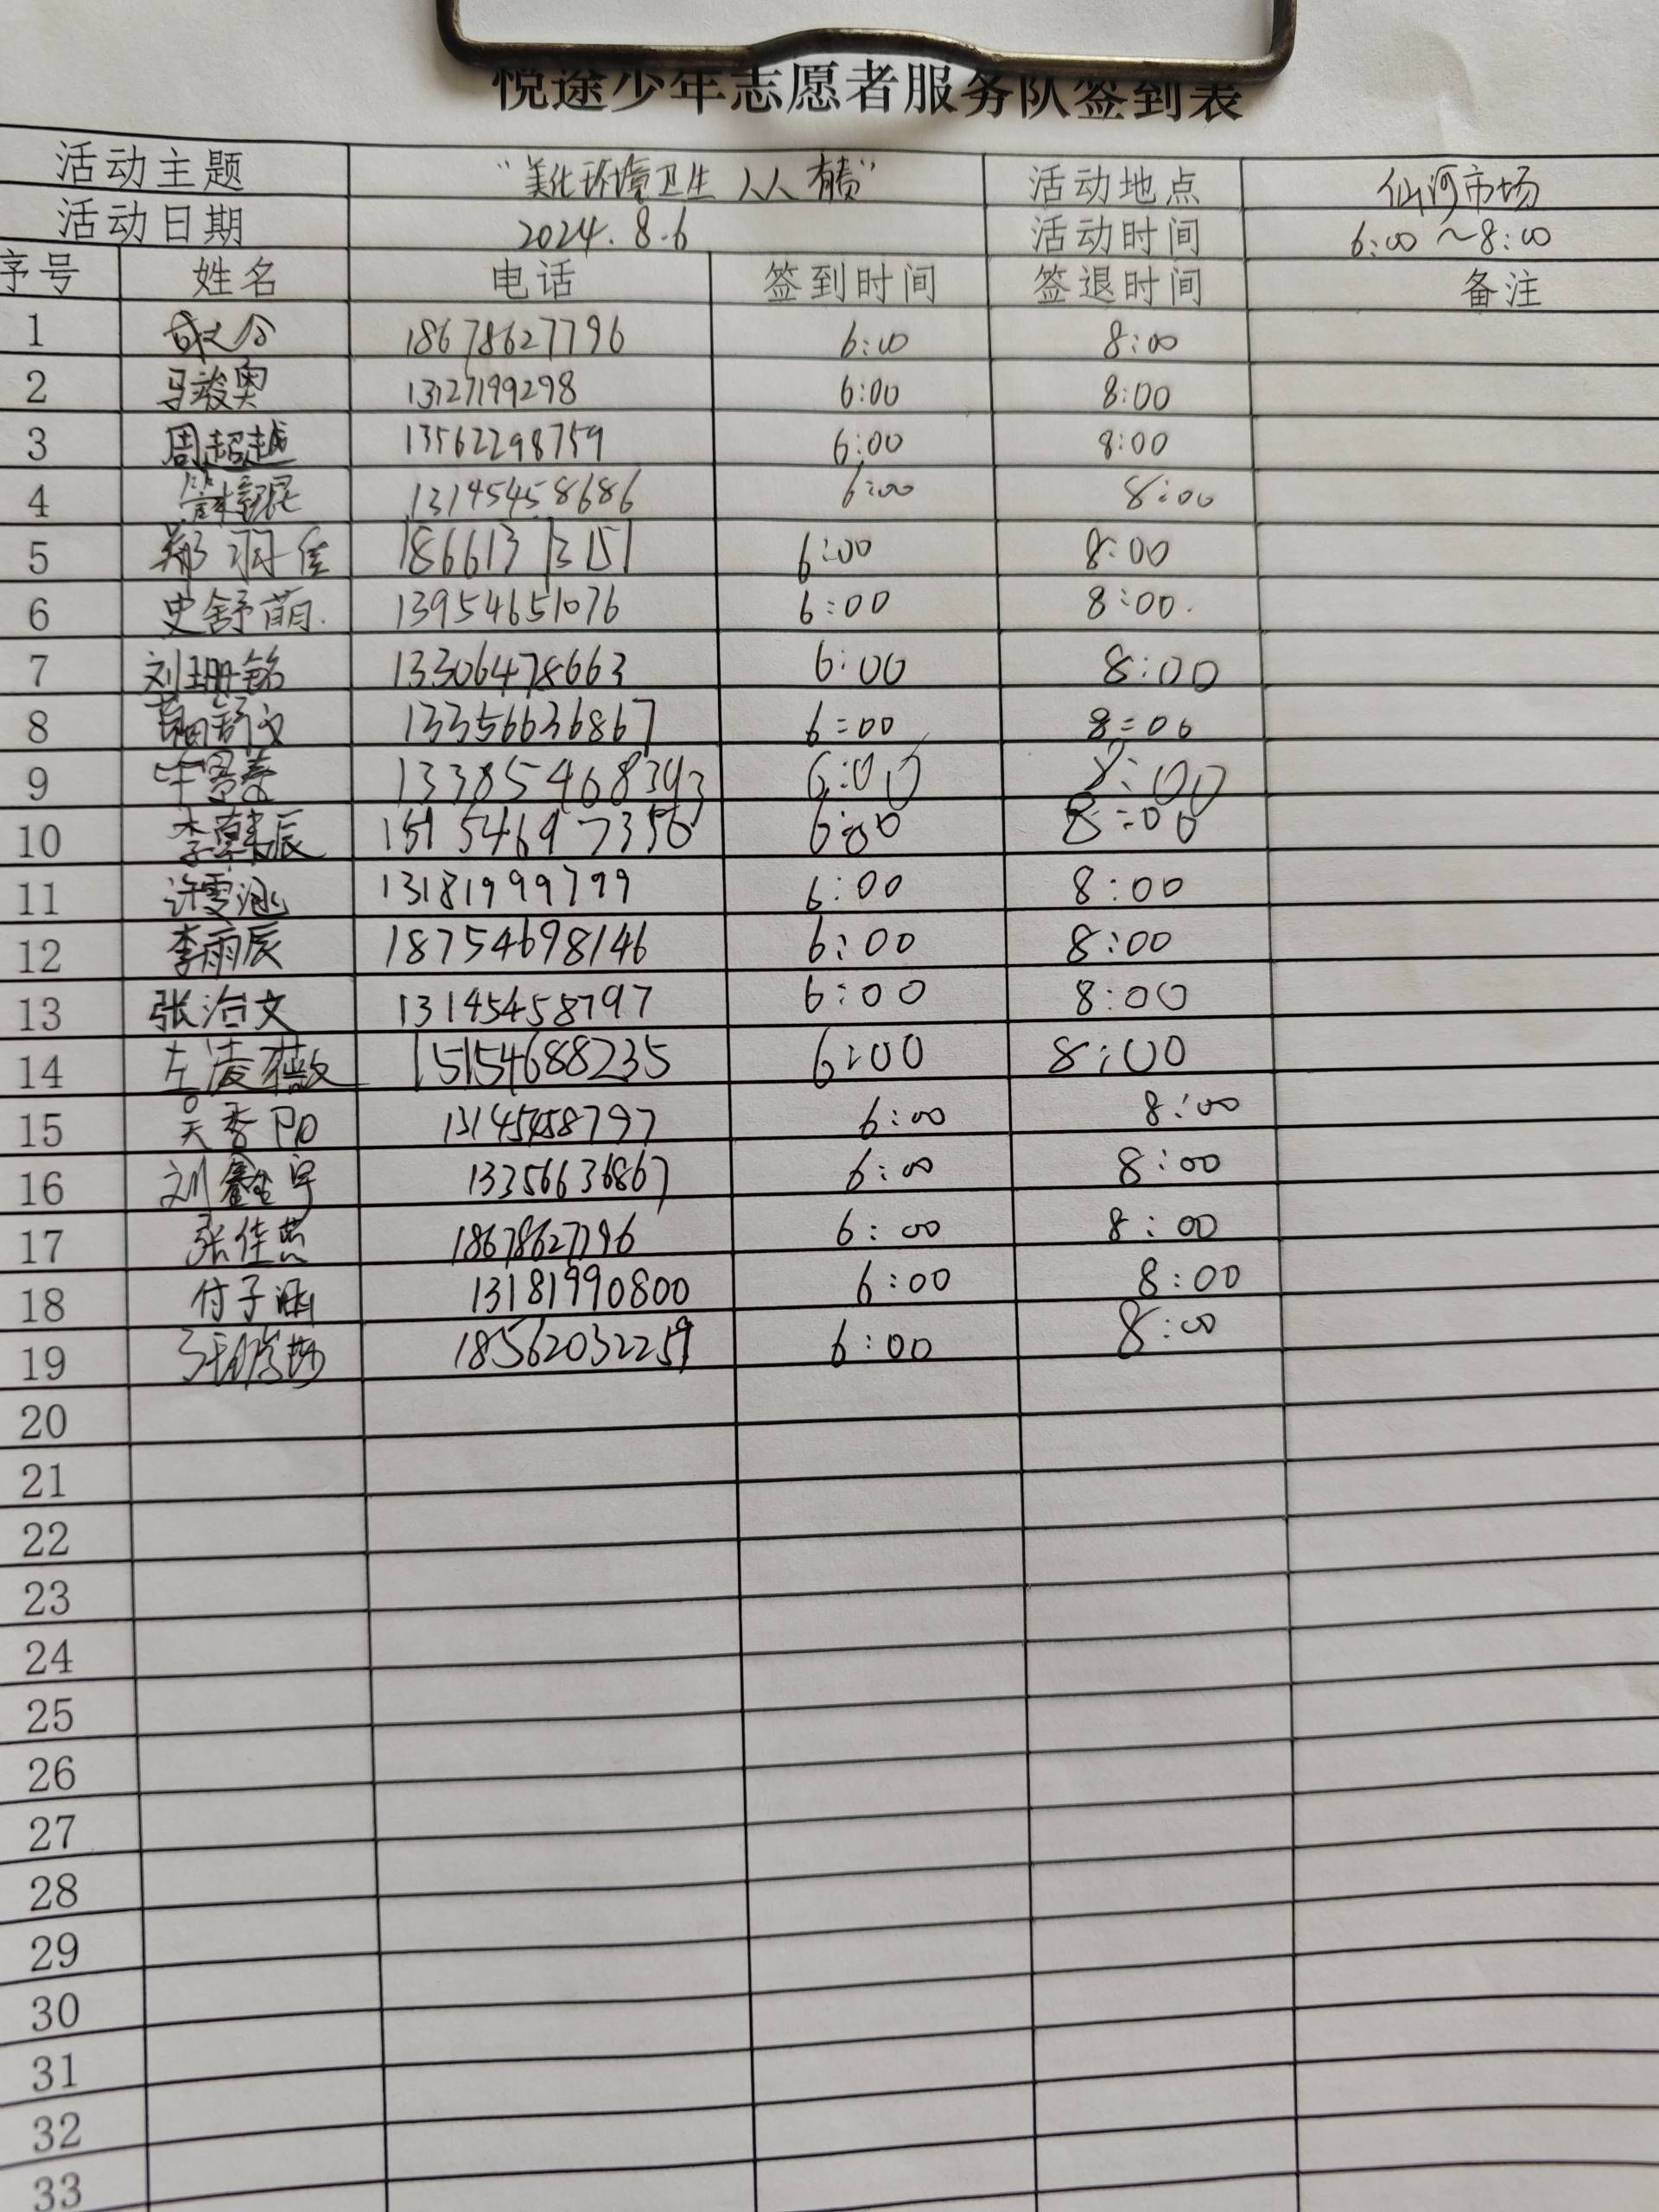 悦途少年志愿者服务队签到表
活动主题 "美化环境卫生 人人有责" 活动地点 仙河市场
活动日期 2024.8.6 活动时间 6:00~8:00
序号 姓名 电话 签到时间 签退时间 备注
1 18678627796 6:00 8:00
2 马骏奥 13127199298 6:00 8:00
3 周超越 13562298759 6:00 8:00
4 13145458686 6:00 8:00
5 郑羽佳 18661313151 6:00 8:00
6 史舒萌 13954651076 6:00 8:00
7 刘珊铭 13306478663 6:00 8:00
8 13356636867 6:00 8:00
9 13385468393 6:00 8:00
10 李韩辰 15154697356 6:00 8:00
11 许雯涵 13181999799 6:00 8:00
12 李雨辰 18754698146 6:00 8:00
13 张治文 13145458797 6:00 8:00
14 左凌薇 15154688235 6:00 8:00
15 吴香 13145458797 6:00 8:00
16 刘鑫宇 13356636867 6:00 8:00
17 张佳 18678627796 6:00 8:00
18 付子涵 13181990800 6:00 8:00
19 18562032259 6:00 8:00
20
21
22
23
24
25
26
27
28
29
30
31
32
33